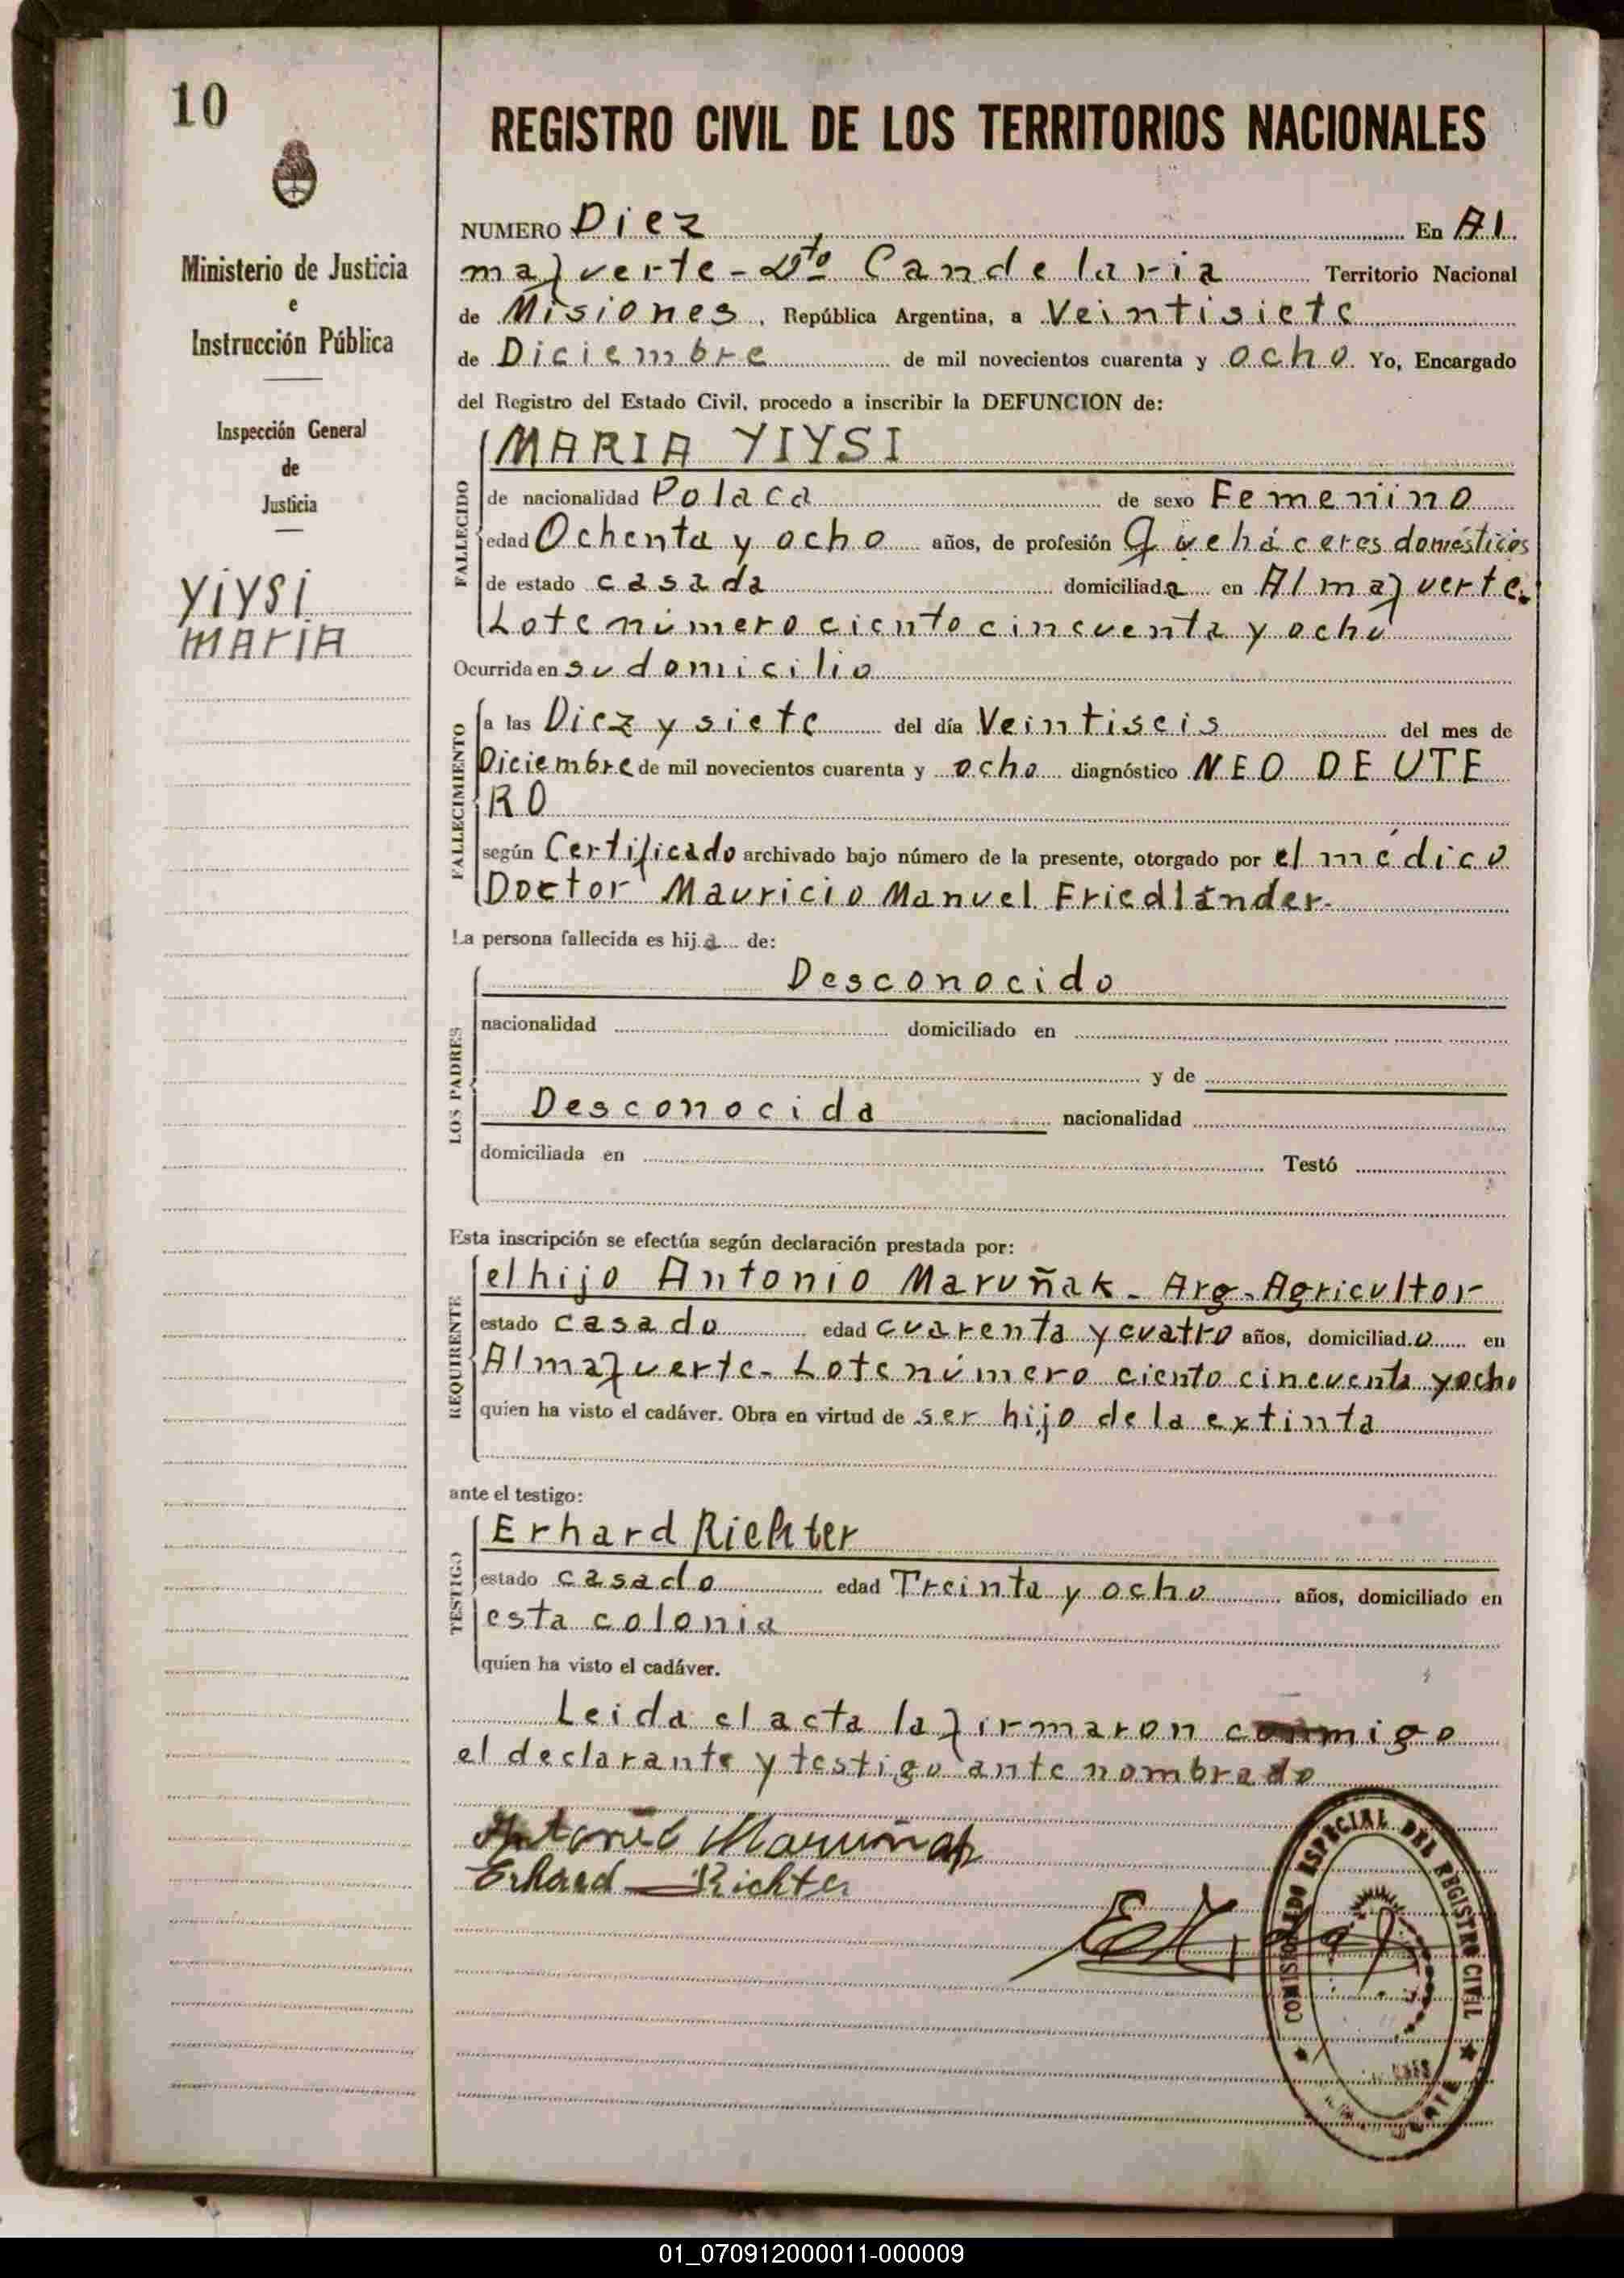 10
Ministerio de Justicia
e
Instrucción Pública
Inspección General
de
Justicia
YIYSI
MARIA
REGISTRO CIVIL DE LOS TERRITORIOS NACIONALES
NUMERO Diez En Al
mafuerte - Dto Candelaria Territorio Nacional
de Misiones, República Argentina, a Veintisiete
de Diciembre de mil novecientos cuarenta y ocho. Yo, Encargado
del Registro del Estado Civil, procedo a inscribir la DEFUNCION de:
MARIA YIYSI
FALLECIDO
de nacionalidad Polaca de sexo Femenino
edad Ochenta y ocho años, de profesión Quehaceres domésticos
de estado casada domiciliada en Almafuerte.
Lote número ciento cincuenta y ocho
Ocurrida en su domicilio
FALLECIMIENTO
a las Diez y siete del día Veintiseis del mes de
Diciembre de mil novecientos cuarenta y ocho diagnóstico NEO DE UTE
RO
según Certificado archivado bajo número de la presente, otorgado por el médico
Doctor Mauricio Manuel Friedländer.
La persona fallecida es hija de:
LOS PADRES
Desconocido
nacionalidad domiciliado en
y de
Desconocida nacionalidad
domiciliada en Testó
Esta inscripción se efectúa según declaración prestada por:
REQUIRENTE
el hijo Antonio Maruñak - Arg. Agricultor
estado casado edad cuarenta y cuatro años, domiciliado en
Almafuerte - Lote número ciento cincuenta y ocho
quien ha visto el cadáver. Obra en virtud de ser hijo de la extinta
ante el testigo:
TESTIGO
Erhard Richter
estado casado edad Treinta y ocho años, domiciliado en
esta colonia
quien ha visto el cadáver.
Leida el acta la firmaron conmigo
el declarante y testigo ante nombrado
Antonio Maruñak
Erhard Richter
COMISIONADO ESPECIAL DEL REGISTRO CIVIL
01_070912000011-000009